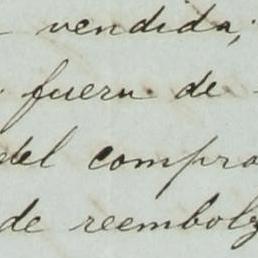 vendida;
fuera de
del compra
de reembolz